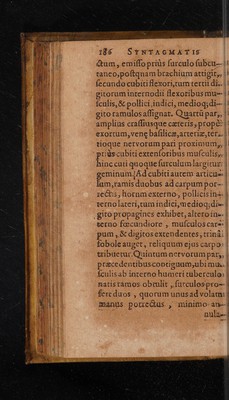 186 SYNTAGMATIS
ctum, emisso priùs surculo subcu-
taneo, postquam brachium attigit,
secundo cubiti flexori, tum tertii di-
gitorum internodii flexoribus mu-
sculis, & pollici, indici, medioq; di-
gito ramulos assignat. Quartū par,
amplius crassiusque cæteris, propè
exortum, venę basilicæ, arteriæ, ter-
tioque nervorum pari proximum,
priùs cubiti extensoribus musculis,
hinc cuti quoque surculum largitur
geminum. Ad cubiti autem articu-
lum, ramis duobus ad carpum por-
rectis, horum externo, pollicis in-
terno lateri, tum indici, medioq; di-
gito propagines exhibet, altero in-
terno fœcundiore, musculos car-
pum, & digitos extendentes, trina
sobole auget, reliquum ejus carpo
tribuetur. Quintum nervorum par,
præcedentibus contiguum, ubi mu-
sculis ab interno humeri tuberculo
natis ramos obtulit, surculos pro-
fert duos, quorum unus ad volam
manus porrectus, minimo an-
nula-